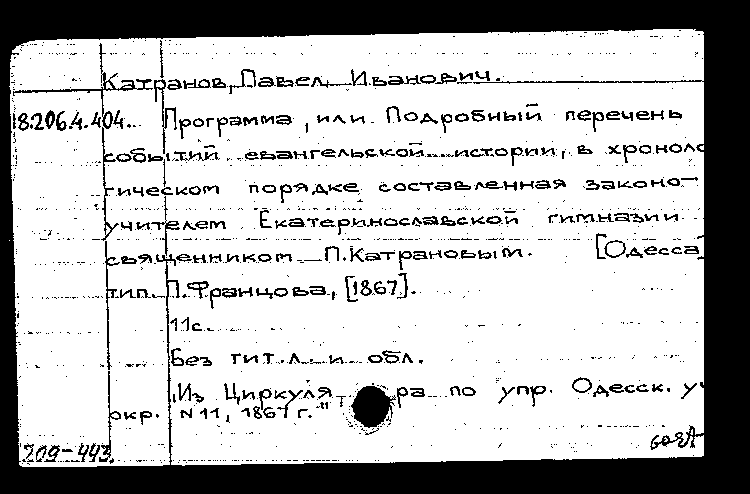 Катранов, Павел Иванович.
18.206.4.404. Программа, или Подробный перечень
событий евангельской истории, в хроноло
гическом порядке составленная законо-
учителем Екатеринославской гимназии
священником П.Катрановым. [Одесса]
тип. П.Францова, [1867].
11с.
Без тит.л. и обл.
"Из Циркуляра по упр. Одесск. уч
окр. N 11, 1867 г."
209-443.